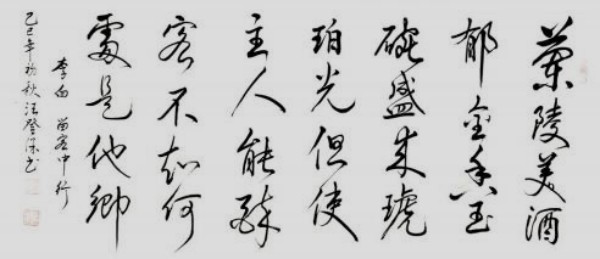 蘭陵美酒
郁金香玉
碗盛来琥
珀光但使
主人能醉
客不知何
處是他鄉
李白 客中行
巳年初秋汪登书